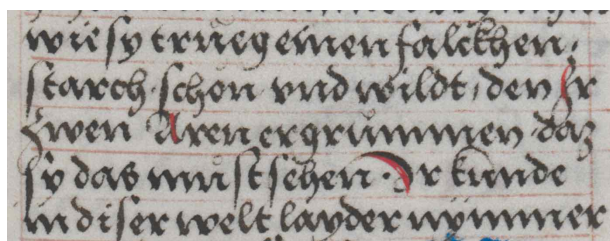 wie sy trüeg einen falckhen.
starch schon vnd wildt, den Ir
zwen Aren ergrummen. daz
sy das müest sehen. Ir kunde
in diser welt layder nymmer